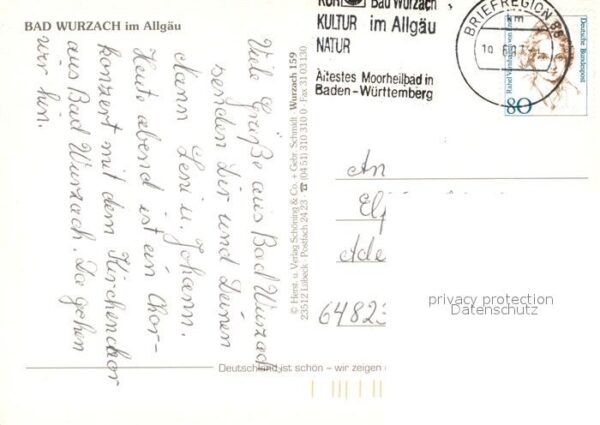 BAD WURZACH im Allgäu
Viele Grüße aus Bad Wurzach
senden dir und Deinem
Mann Leni u. Johann.
Heute abend ist ein Chor-
konzert mit dem Kirchenchor
aus Bad Wurzach. Da gehen
wir hin.
© Herst. u. Verlag Schöning & Co. + Gebr. Schmidt · Wurzach 159
23512 Lübeck · Postfach 24 23 · ☎ (04 51) 310 310 · Fax 31 03 130
KUR Bad Wurzach
KULTUR im Allgäu
NATUR
Ältestes Moorheilbad in
Baden-Württemberg
BRIEFREGION 88
Deutsche Bundespost
80
An
64823
privacy protection
Datenschutz
Deutschland ist schön – wir zeigen